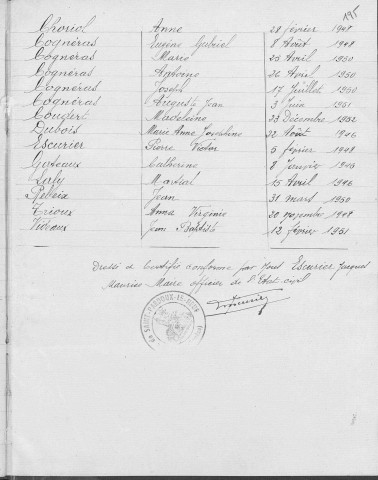 195
Choriol Anne 28 février 1948
Cogneras Eugène Gabriel 8 Août 1948
Cogneras Marie 25 Avril 1950
Cogneras Antoine 26 Avril 1950
Cogneras Joseph 17 Juillet 1950
Cogneras Auguste Jean 3 Juin 1951
Cougert Madeleine 23 Décembre 1952
Dubois Marie Anne 22 Août 1946
Escurier Pierre Victor 5 février 1948
Gateaux Catherine 8 Janvier 1946
Laly Martial 15 Avril 1946
Pelleix Jean 31 mars 1950
Trioux Anna Virginie 20 novembre 1948
Jean Baptiste 12 février 1951
Dressé et Certifié conforme par nous Escurier Jacques
Maurice Marie officier de l'Etat civil